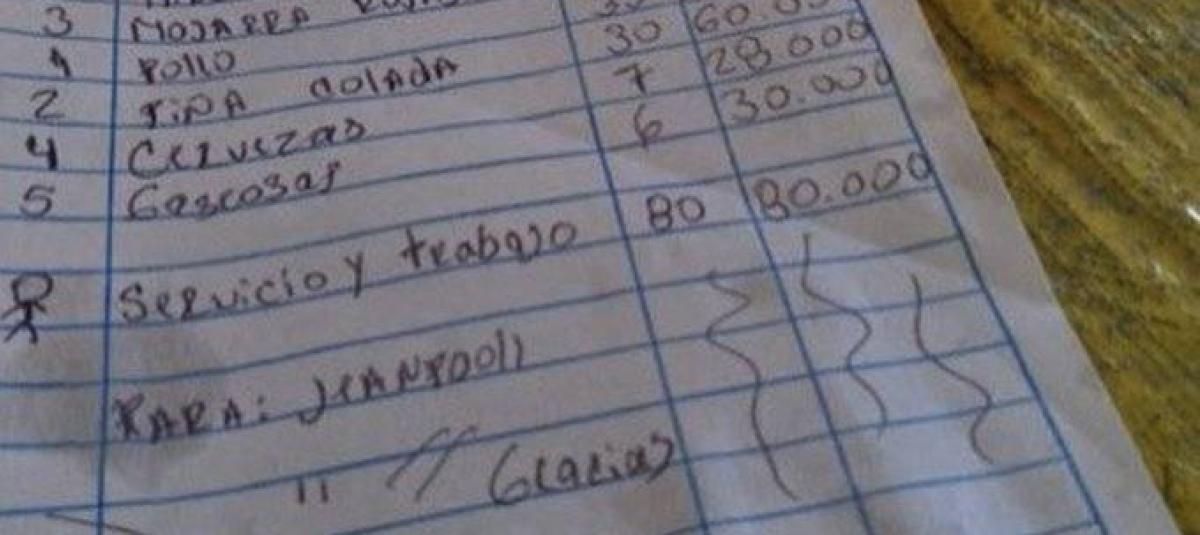 3 MOJARRA
1 POLLO
2 PIÑA COLADA 30 60.000
4 Cervezas 7 28.000
5 Gaseosas 6 30.000
Servicio y trabajo 80 80.000
PARA: JEANPOOll
" // Gracias